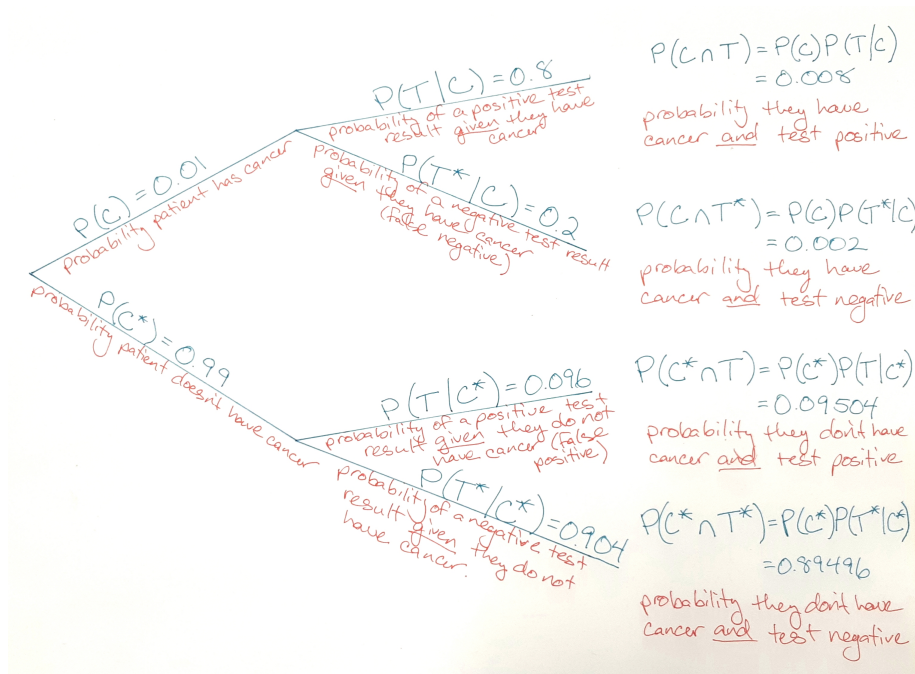 P(C) = 0.01
probability patient has cancer
P(C*) = 0.99
probability patient doesn't have cancer
P(T|C) = 0.8
probability of a positive test
result given they have
cancer
P(T*|C) = 0.2
probability of a negative test result
given they have cancer
(false
negative)
P(T|C*) = 0.096
probability of a positive test
result given they do not
have cancer (false
positive)
P(T*|C*) = 0.904
probability of a negative test
result given they do not
have cancer.
P(C∩T) = P(C)P(T|C)
= 0.008
probability they have
cancer and test positive
P(C∩T*) = P(C)P(T*|C)
= 0.002
probability they have
cancer and test negative
P(C*∩T) = P(C*)P(T|C*)
= 0.09504
probability they don't have
cancer and test positive
P(C*∩T*) = P(C*)P(T*|C*)
= 0.89496
probability they don't have
cancer and test negative